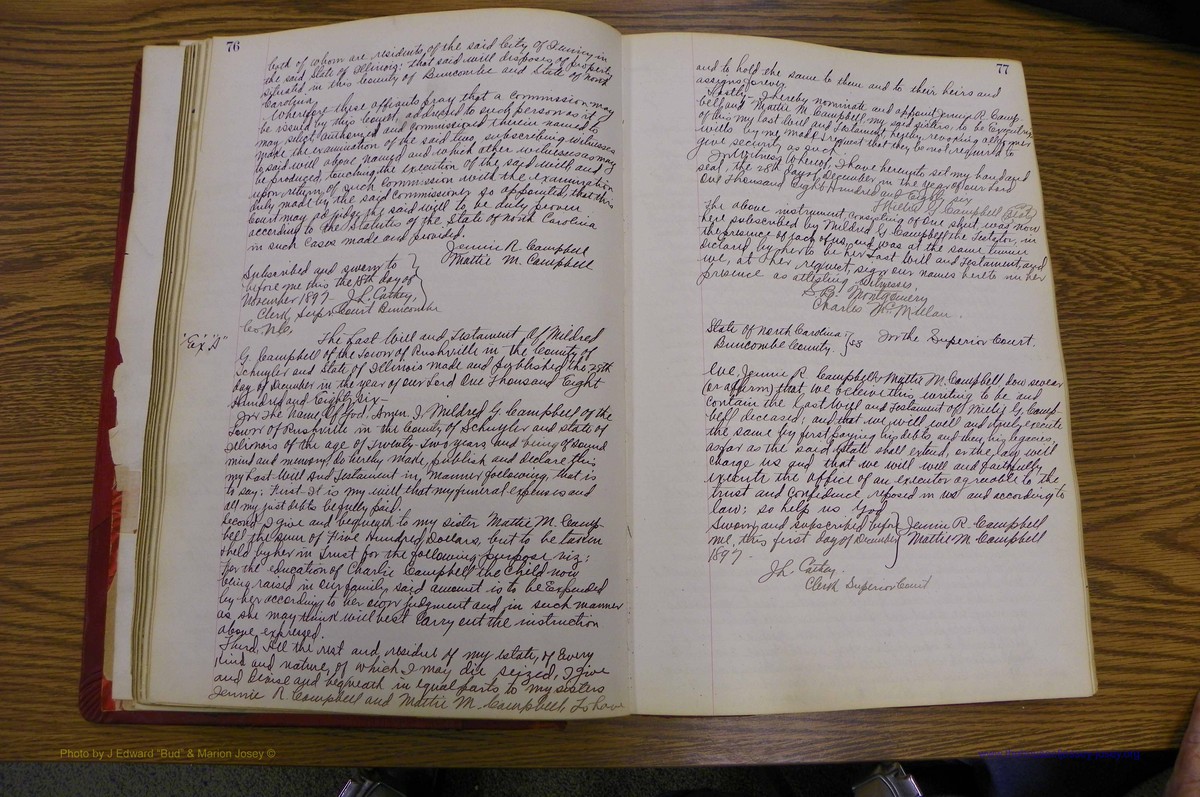 76
both of whom are residents of the said City of Quincy in
the said State of Illinois: that said will disposes of property
situated in this County of Buncombe and State of North
Carolina.
Wherefore these affiants pray that a commission may
be issued by this Court, addressed to such person as it
may select authorized and commissioned therein named to
make the examination of the said two subscribing witnesses
to said will above named and which other witnesses as may
be produced, touching the execution of the said will, and
upon return of such Commission with the examination
duly made by the said commissioner so appointed that this
Court may adjudge the said will to be duly proven
according to the Statutes of the State of North Carolina
in such cases made and provided.
Jennie R. Campbell
Mattie M. Campbell
Subscribed and sworn to
before me this the 18th day of
November 1897
J.L. Cathey,
Clerk Supr Court Buncombe
Co N.C.
"Ex. A"
The Last Will and Testament of Mildred
G. Campbell of the Town of Rushville in the County of
Schuyler and State of Illinois made and published the 28th
day of December in the year of our Lord One Thousand Eight
Hundred and Eighty six—
In The Name Of God. Amen. I, Mildred G. Campbell of the
Town of Rushville in the County of Schuyler and State of
Illinois of the age of Twenty-two years and being of sound
mind and memory, do hereby made, publish and declare this
my Last Will And Testament in, manner following, that is
to say: First. It is my will that my funeral expenses and
all my just debts be fully paid.
Second I give and bequeath to my sister Mattie M. Camp-
bell the Sum of Five Hundred Dollars, but to be taken
& held by her in Trust for the following purpose viz:
for the education of Charlie Campbell the Child now
being raised in our family, said amount is to be Expended
by her according to her own judgment and in such manner
as she may think will best Carry out the instruction
above expressed.
Third. All the rest and, residue of my Estate, of Every
kind and nature, of which I may die seized, I give
and Devise and bequeath in equal parts to my sisters
Jennie R. Campbell and Mattie M. Campbell, To have
77
and to hold the same to them and to their heirs and
assigns forever.
Lastly— I hereby nominate and appoint Jennie R. Camp-
bell and Mattie M. Campbell, my said sisters, to be Executrix
of this my last Will and Testament, hereby revoking all former
wills by me made & request that they be not required to
give security as such.
In Witness Whereof, I have hereunto set my hand and
seal, the 28th day of December in the year of our Lord
One Thousand Eight Hundred and Eighty six
Millie G. Campbell (Seal)
The above instrument, consisting of One sheet, was now
here subscribed by Mildred G Campbell the Testator, in
the presence of each of us; and was at the same time
declared by her to be her Last Will and Testament, and
we, at her request, sign our names hereto in her
presence as attesting Witnesses.
S. B. Montgomery
Charles McMillan.
State of North Carolina } SS In the Superior Court.
Buncombe County.
We, Jennie R. Campbell & Mattie M. Campbell do swear
(or affirm) that we believe this writing to be and
contain the Last Will and Testament of Millie G. Camp-
bell deceased; and that we will well and truly execute
the same by first paying his debts and then his legacies,
as far as the said Estate shall extend, or the law will
charge us and that we will well and faithfully
execute the office of an executor agreeable to the
trust and confidence reposed in us and according to
law: so help us God
Sworn and subscribed before } Jennie R. Campbell
me, this first day of December } Mattie M Campbell
1897
J.L. Cathey.
Clerk Superior Court
Photo by J Edward "Bud" & Marion Josey ©